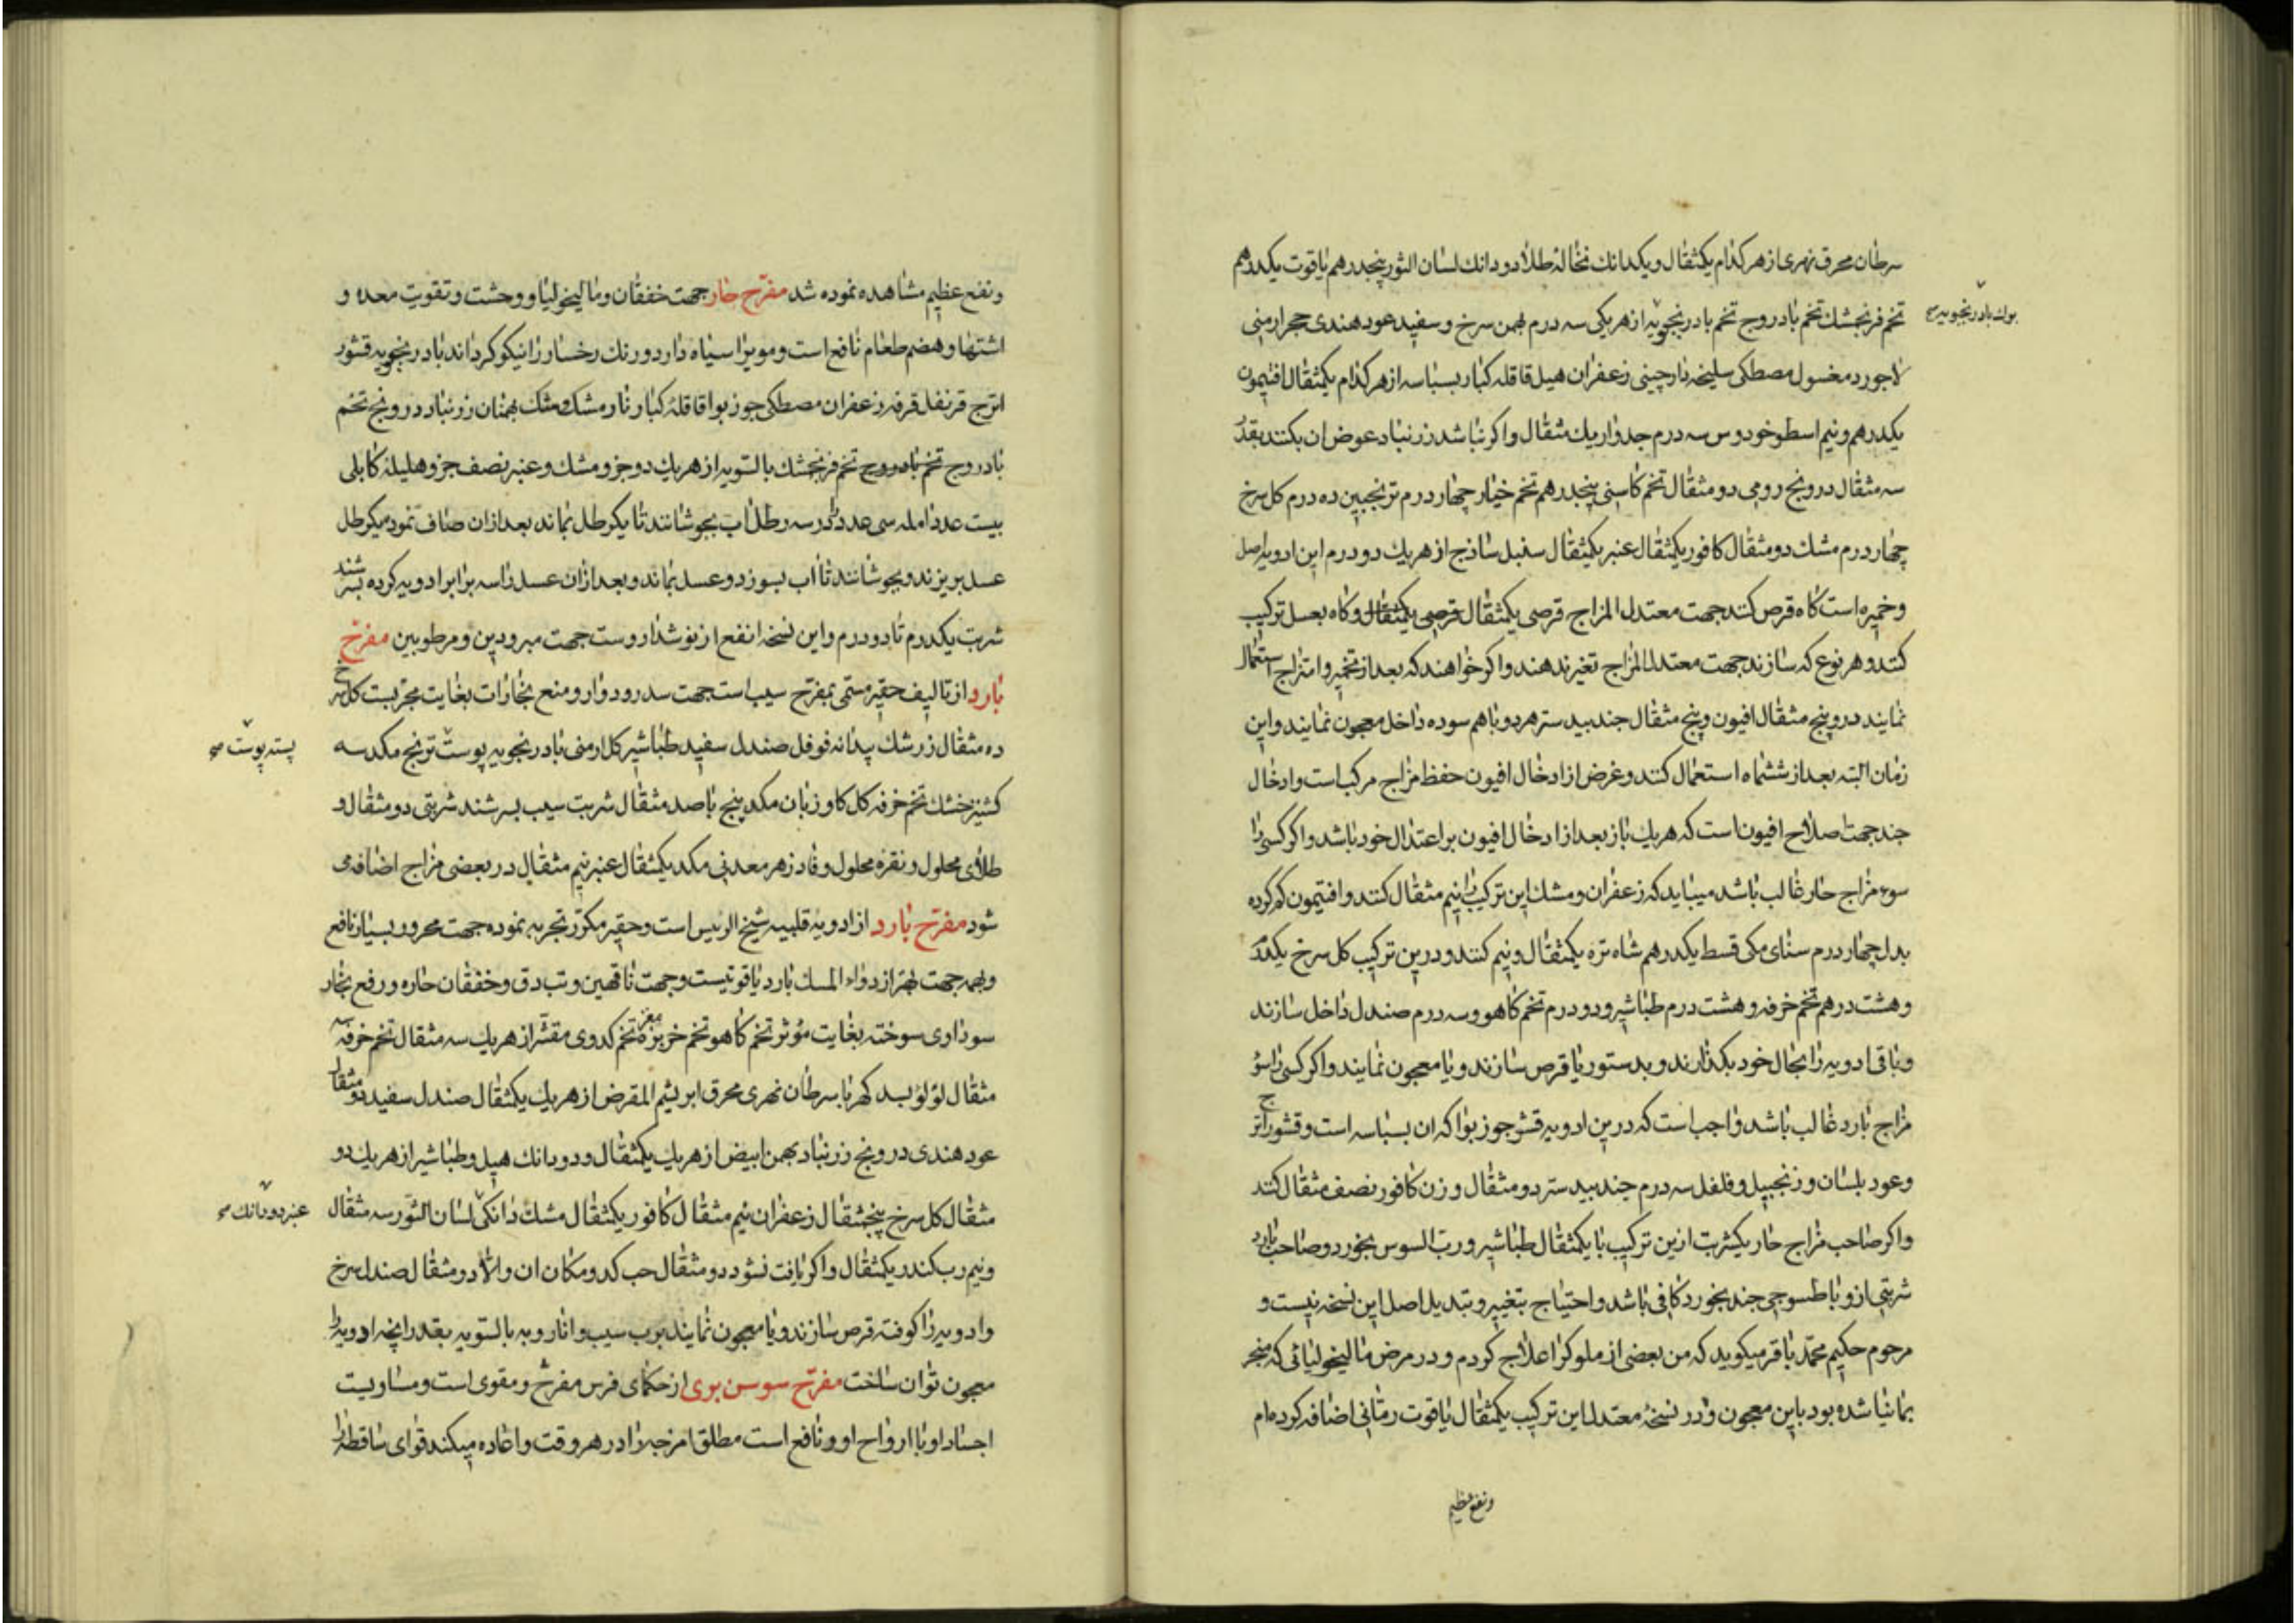 سرطان محرق نهری از هر کدام یکمثقال و یکدانک نخالهٔ طلا دو دانک لسان الثور پنجدرهم یاقوت یکدرهم
تخم فرنجمشک تخم بادروج تخم بادرنجویه از هر یکی سه درم بهمن سرخ و سفید عود هندی حجر ارمنی
لاجورد مغسول مصطکی سلیخه دارچینی زعفران هیل قاقله کبار بسباسه از هر کدام یکمثقال افتیمون
یکدرهم و نیم اسطوخودوس سه درم جدوار یک مثقال و اکر نباشد زرنباد عوض ان بکنند بقدر
سه مثقال درونج رومی دو مثقال تخم کاسنی پنجدرهم تخم خیار چهار درم ترنجبین ده درم کل سرخ
چهار درم مشک دو مثقال کافور یکمثقال عنبر یکمثقال سنبل ساذج از هر یک دو درم این ادویه اصل
و خمیره است کاه قرص کنند جهت معتدل المزاج قرصی یکمثقال قرصی یکمثقال و کاه بعسل ترکیب
کنند و هر نوع که سازند جهت معتدل المزاج تغیر ندهند و اکر خواهند که بعد از تخمیر و امتزاج استعمال
نمایند درو پنج مثقال افیون و پنج مثقال جندبیدستر هر دو باهم سوده داخل معجون نمایند و این
زمان البته بعد از ششماه استعمال کنند و غرض از ادخال افیون حفظ مزاج مرکب است و ادخال
جند جهت اصلاح افیون است که هر یک باز بعد از ادخال افیون بر اعتدال خود باشد و اکر کسی را
سوء مزاج حار غالب باشد میباید که زعفران و مشک این ترکیب را نیم مثقال کنند و افتیمون کم کرده
بدل چهار درم سنای مکی قسط یکدرهم شاه تره یکمثقال و نیم کنند و درین ترکیب کل سرخ یکدر
و هشت درهم تخم خرفه و هشت درم طباشیر و دو درم تخم کاهو و سه درم صندل داخل سازند
و باقی ادویه را بحال خود بکذارند و بدستور یا قرص سازند و یا معجون نمایند و اکر کسی را سوء
مزاج بارد غالب باشد واجب است که درین ادویه قشر جوز بوا که ان بسباسه است و قشور اترج
و عود بلسان و زنجبیل و فلفل سه درم جندبیدستر دو مثقال و زن کافور نصف مثقال کنند
و اکر صاحب مزاج حار یکشربت ازین ترکیب با یکمثقال طباشیر و رب السوس بخورد و صاحب بارد
شربتی ازو با طسوجی جند بخورد کافی باشد و احتیاج بتغییر و تبدیل اصل این نسخه نیست و
مرحوم حکیم محمد باقر میکوید که من بعضی از ملوک را علاج کردم و در مرض مالیخولیائی که منجر
بمانیا شده بود باین معجون و در نسخهٔ معتدل این ترکیب یکمثقال یاقوت رمانی اضافه کرده ام
ونفع عظیم
ونفع عظیم مشاهده نموده شد مفرح حار جهت خفقان و مالیخولیا و وحشت و تقویت معده و
اشتها و هضم طعام نافع است و مویرا سیاه دارد و رنک رخسار را نیکو کرداند بادرنجویه قشور
اترج قرنفل قرفه زعفران مصطکی جوز بوا قاقلهٔ کبار نارمشک مشک بهمنان زرنباد درونج تخم
بادروج تخم بادروج تخم فرنجمشک بالسویه از هر یک دو جزو مشک و عنبر نصف جزو هلیلهٔ کابلی
بیست عدد امله سی عدد در سه رطل اب بجوشانند تا یکرطل بماند بعد ازان صاف نموده یکرطل
عسل بریزند و بجوشانند تا اب بسوزد و عسل بماند و بعد ازان عسل را سه برابر ادویه کرده بسرشند
شربت یکدرم تا دو درم و این نسخه انفع از نوشدارو است جهت مبرودین و مرطوبین مفرح
بارد از تالیف حقیر مسمی بمفرح سیب است جهت سدر و دوار و منع بخارات بغایت مجربست کل سرخ
ده مثقال زرشک بیدانه فوفل صندل سفید طباشیر کل ارمنی بادرنجویه پوست ترنج مکد سه
کشنیز خشک تخم خرفه کل کاوزبان مکد پنج با صد مثقال شربت سیب بسرشند شربتی دو مثقال و
طلای محلول و نقره محلول و فادزهر معدنی مکد یکمثقال عنبر نیم مثقال در بعضی مزاج اضافه می
شود مفرح بارد از ادویهٔ قلبیه شیخ الرئیس است و حقیر مکرر تجربه نموده جهت محرور بسیار نافع
و بهمه جهت بهتر از دواء المسک بارد یاقوتیست و جهت ناقهین و تب دق و خفقان حاره و رفع بخار
سوداوی سوخته بغایت مؤثر تخم کاهو تخم خربزه مغز تخم کدوی مقشر از هر یک سه مثقال تخم خرفه سه
مثقال لؤلؤ بسد کهربا سرطان نهری محرق ابریشم المقرض از هر یک یکمثقال صندل سفید دو مثقال
عود هندی درونج زرنباد بهمن ابیض از هر یک یکمثقال و دو دانک هیل و طباشیر از هر یک دو
مثقال کل سرخ پنجمثقال زعفران نیم مثقال کافور یکمثقال مشک دانکی لسان الثور سه مثقال
و نیم رب کندر یکمثقال و اکر یافت نشود دو مثقال حب کدو مکان ان والا دو مثقال صندل سرخ
و ادویه را کوفته قرص سازند و یا معجون نمایند برب سیب و انار و به بالسویه بقدر انچه ادویه را
معجون توان ساخت مفرح سوسن بری از حکمای فرس مفرح و مقوی است و مساویست
اجساد او با ارواح او و نافع است مطلق امزجه را در هر وقت و اعاده میکند قوای ساقطه را
پسته پوست
عنبر دو دانک